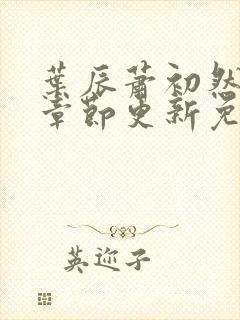 葉辰蕭初然
章節更新免
英迩子